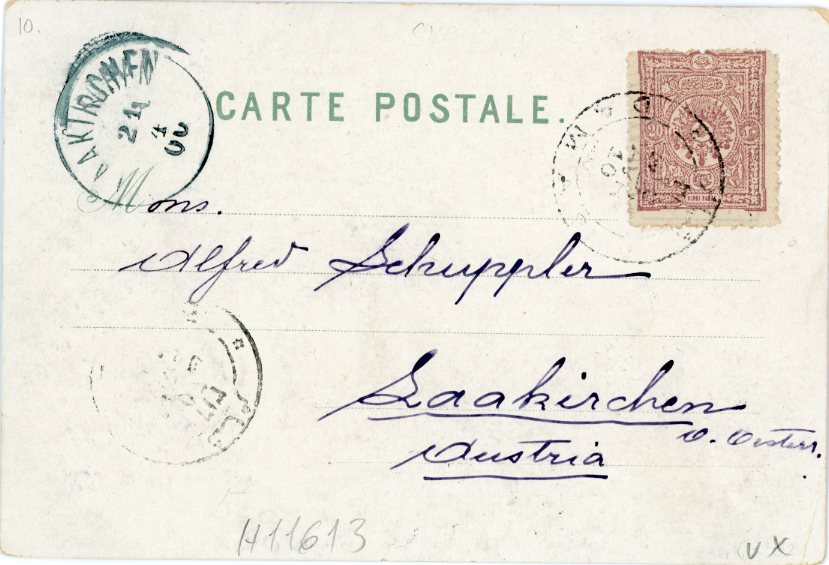 10.
AAKIRCHEN
21
4
00
CARTE POSTALE.
20
Mons.
Alfred Schuppler
Laakirchen
O. Oesterr.
Austria
H11613
VX